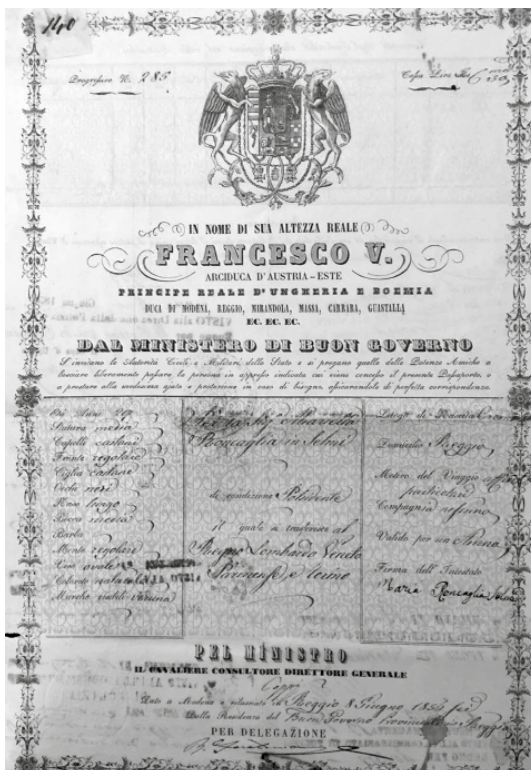 140
Progressivo N. 285
IN NOME DI SUA ALTEZZA REALE
FRANCESCO V.
ARCIDUCA D'AUSTRIA-ESTE
PRINCIPE REALE D'UNGHERIA E BOEMIA
DUCA DI MODENA, REGGIO, MIRANDOLA, MASSA, CARRARA, GUASTALLA
EC. EC. EC.
DAL MINISTERO DI BUON GOVERNO
S'invitano le Autorità Civili e Militari dello Stato e si pregano quelle delle Potenze Amiche a
lasciare liberamente passare la persona in appresso indicata cui viene concesso il presente Passaporto, e
a prestare alla medesima ajuto e protezione in caso di bisogno, assicurandole di perfetta corrispondenza
Età Anni
Statura media
Capelli castani
Fronte regolare
Ciglia castane
Occhi neri
Naso lungo
Bocca media
Barba
Mento regolare
Viso ovale
Colorito naturale
Marche visibili veruna
Roncaglia in
di condizione Possidente
il quale si trasferisce al
Regno Lombardo Veneto
e Ticino
Luogo di Nascita
Domicilio Reggio
Motivo del Viaggio
particolari
Compagnia nessuno
Valido per un Anno
Firma dell'Intestato
Maria Roncaglia
PEL MINISTRO
IL CAVALIERE CONSULTORE DIRETTORE GENERALE
Coppi
Dato a Modena e rilasciato in Reggio 8 Giugno 1854
Dalla Residenza del Buon Governo Provinciale Reggio
PER DELEGAZIONE